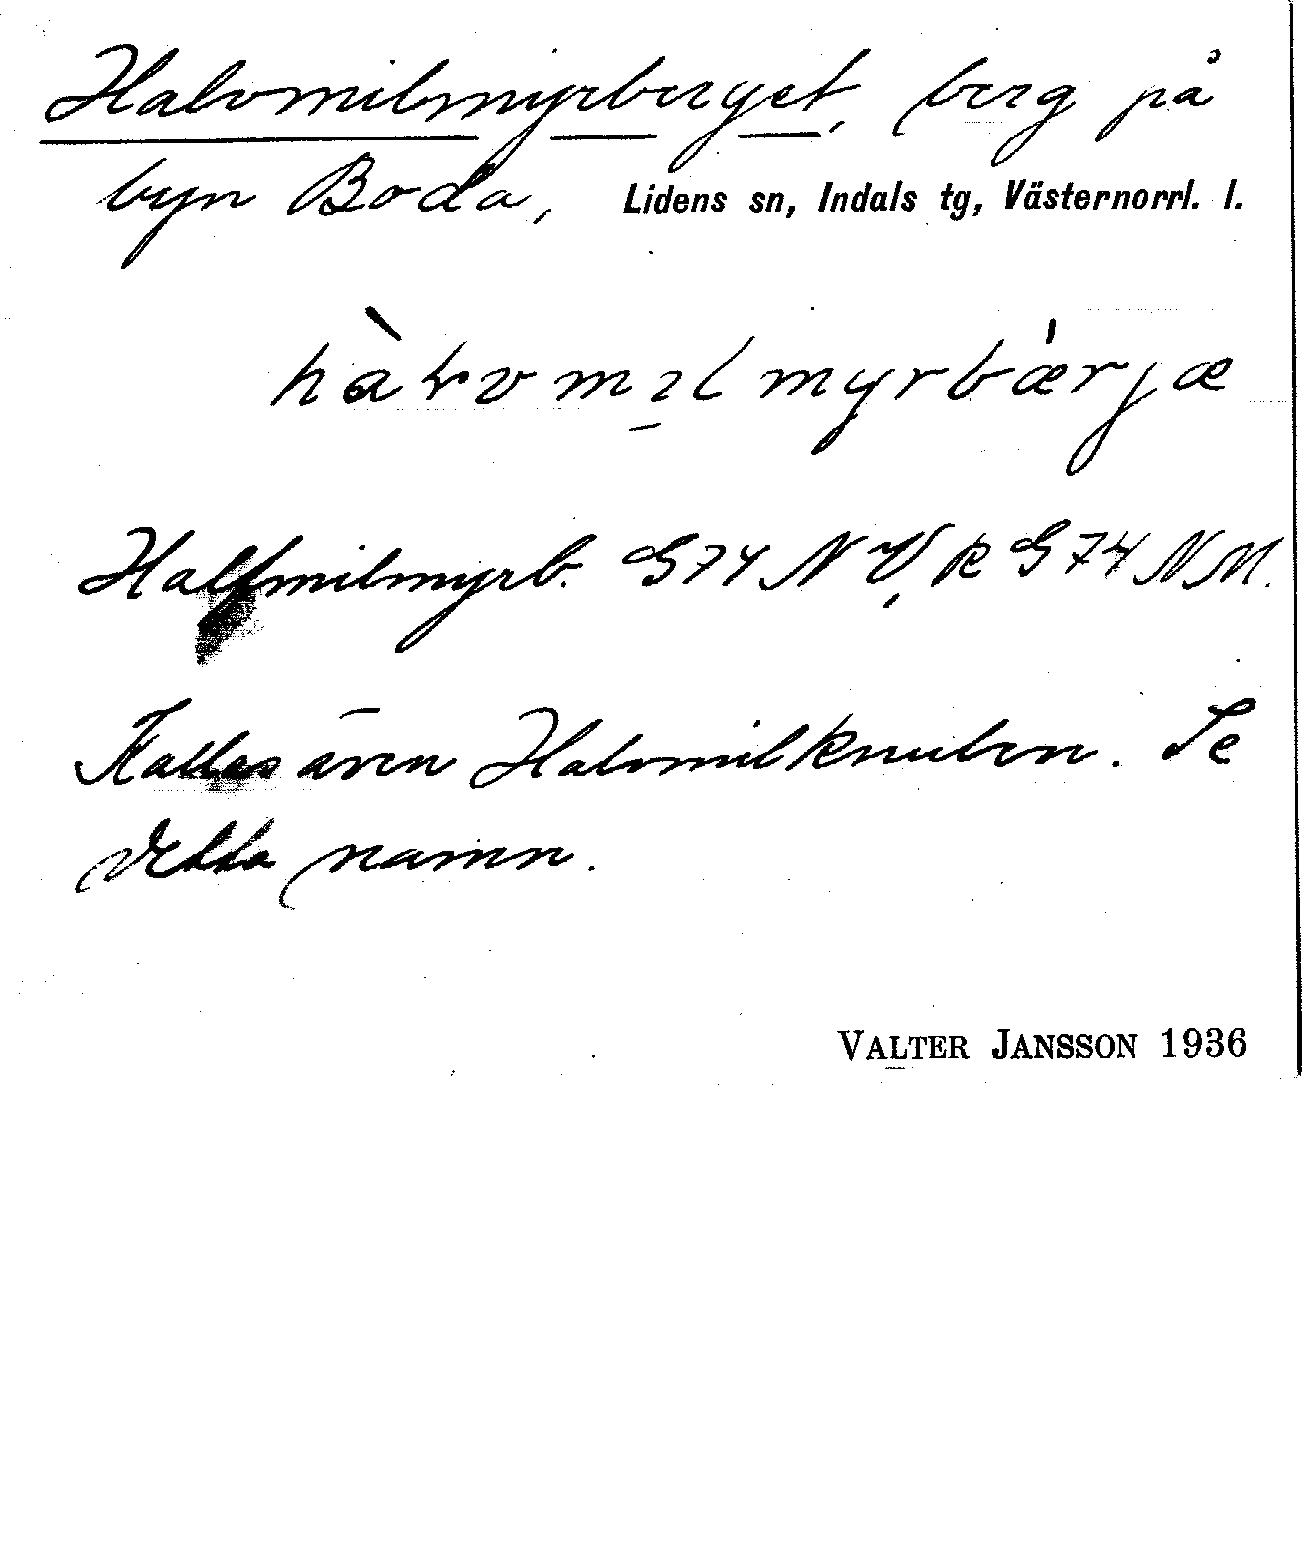 Halvmilmyrberget, berg på
byn Boda, Lidens sn, Indals tg, Västernorrl. l.
hàɽvmı̱lmyrbæ̀rjæ
Halfmilmyrb. G74 NV, k G74 NM.
Kallas även Halvmilknulen. Se
detta namn.
VALTER JANSSON 1936